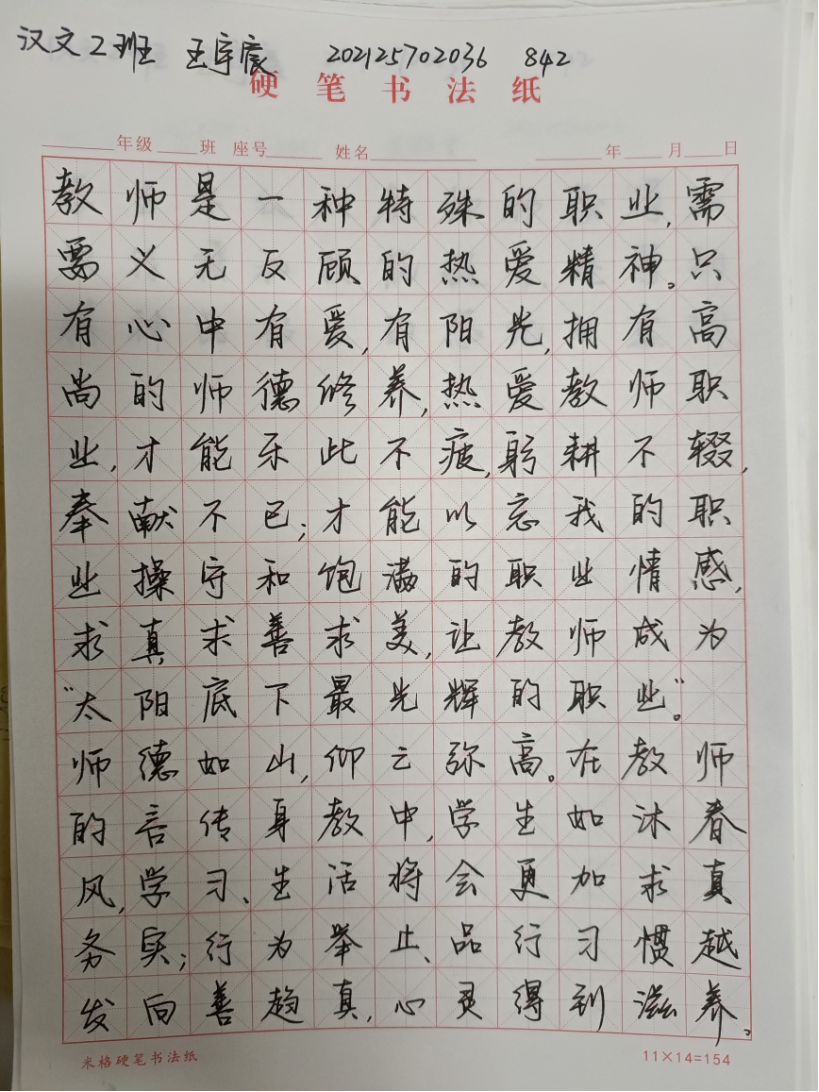 汉文2班 王宇宸 202125702036 842
硬笔书法纸
年级 班 座号 姓名 年 月 日
教师是一种特殊的职业,需
要义无反顾的热爱精神。只
有心中有爱,有阳光,拥有高
尚的师德修养,热爱教师职
业,才能乐此不疲,躬耕不辍,
奉献不已;才能以忘我的职
业操守和饱满的职业情感,
求真求善求美,让教师成为
“太阳底下最光辉的职业”。
师德如山,仰之弥高。在教师
的言传身教中,学生如沐春
风,学习、生活将会更加求真
务实;行为举止、品行习惯越
发向善趋真,心灵得到滋养。
米格硬笔书法纸 11×14=154